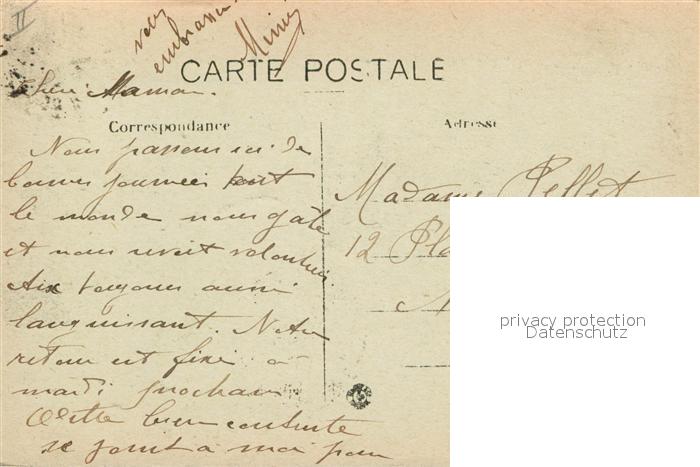 II
vous
embrasser
Mimi
CARTE POSTALE
Chère Maman.
Correspondance
Adresse
Nous passons ici de
bonnes journées tout
le monde nous gâte
et nous revoit volontiers.
Aix toujours aussi
languissant. Notre
retour est fixé à
mardi prochain
bien contente
se joint à moi pour
Madame Pellet
12 Pla
privacy protection
Datenschutz